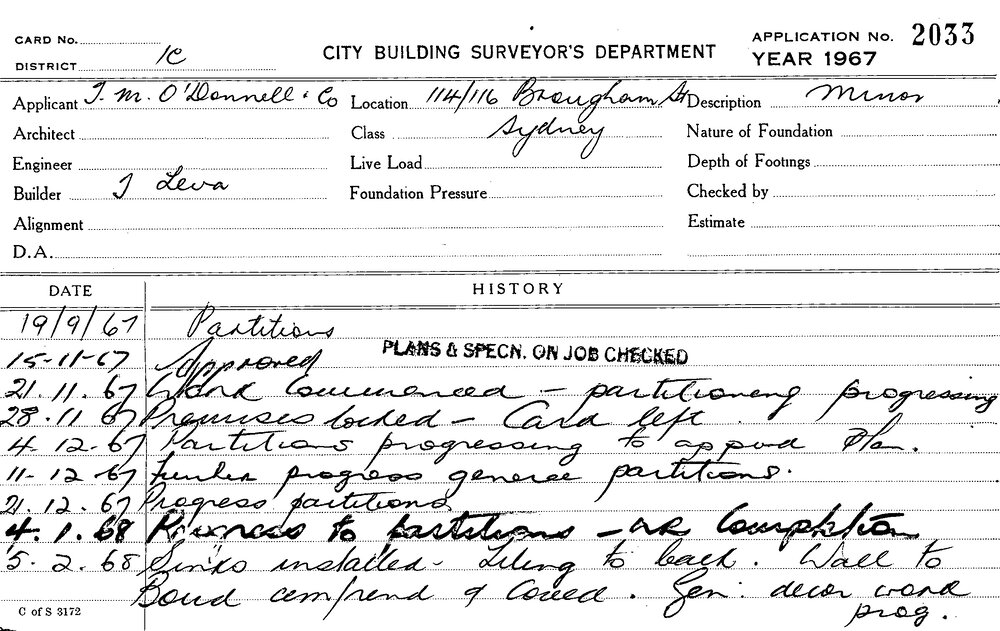 CARD No.
DISTRICT 1C
CITY BUILDING SURVEYOR'S DEPARTMENT
APPLICATION No. 2033
YEAR 1967
Applicant J. M. O'Donnell & Co Location 114/116 Brougham St Description Minor
Architect Class Sydney Nature of Foundation
Engineer Live Load Depth of Footings
Builder J Leva Foundation Pressure Checked by
Alignment Estimate
D.A.
DATE HISTORY
19/9/67 Partitions
15-11-67 Approved PLANS & SPECN. ON JOB CHECKED
21.11.67 Work Commenced – partitioning progressing
28.11 67 Premises locked – Card left
4-12-67 Partitions progressing to appvd Plan.
11-12-67 Further progress general partitions.
21.12.67 Progress partitions
4.1.68 Progress to partitions – nr Completion
5.2.68 Sinks installed - Tiling to back. Wall to
Gen: decor work
prog.
C of S 3172